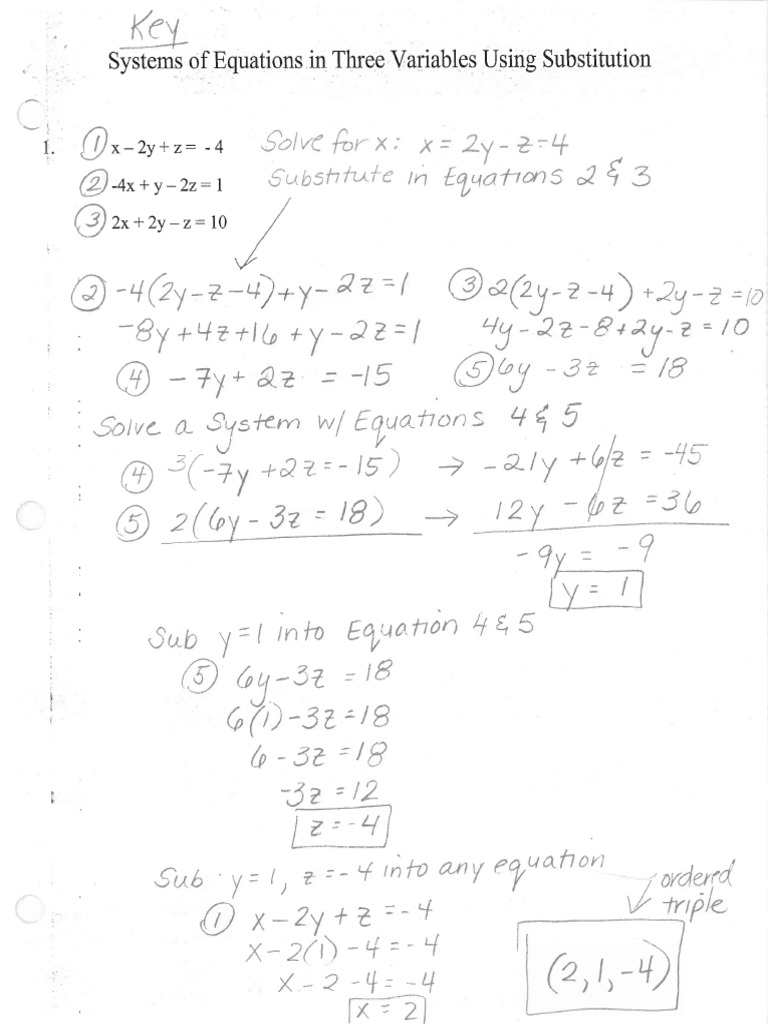 Key
Systems of Equations in Three Variables Using Substitution
1. ① x – 2y + z = - 4 Solve for x: x = 2y - z - 4
② -4x + y – 2z = 1 Substitute in Equations 2 & 3
③ 2x + 2y – z = 10
② -4(2y-z-4)+y-2z=1 ③ 2(2y-z-4)+2y-z=10
-8y+4z+16+y-2z=1 4y-2z-8+2y-z=10
④ -7y+2z = -15 ⑤ 6y-3z = 18
Solve a System w/ Equations 4 & 5
④ 3(-7y+2z=-15) → -21y+6z = -45
⑤ 2(6y-3z=18) → 12y-6z=36
-9y = -9
y = 1
Sub y=1 into Equation 4 & 5
⑤ 6y-3z=18
6(1)-3z=18
6-3z=18
-3z=12
z=-4
Sub y=1, z=-4 into any equation
ordered
triple
① x-2y+z=-4
x-2(1)-4=-4
x-2-4=-4
(2,1,-4)
x = 2